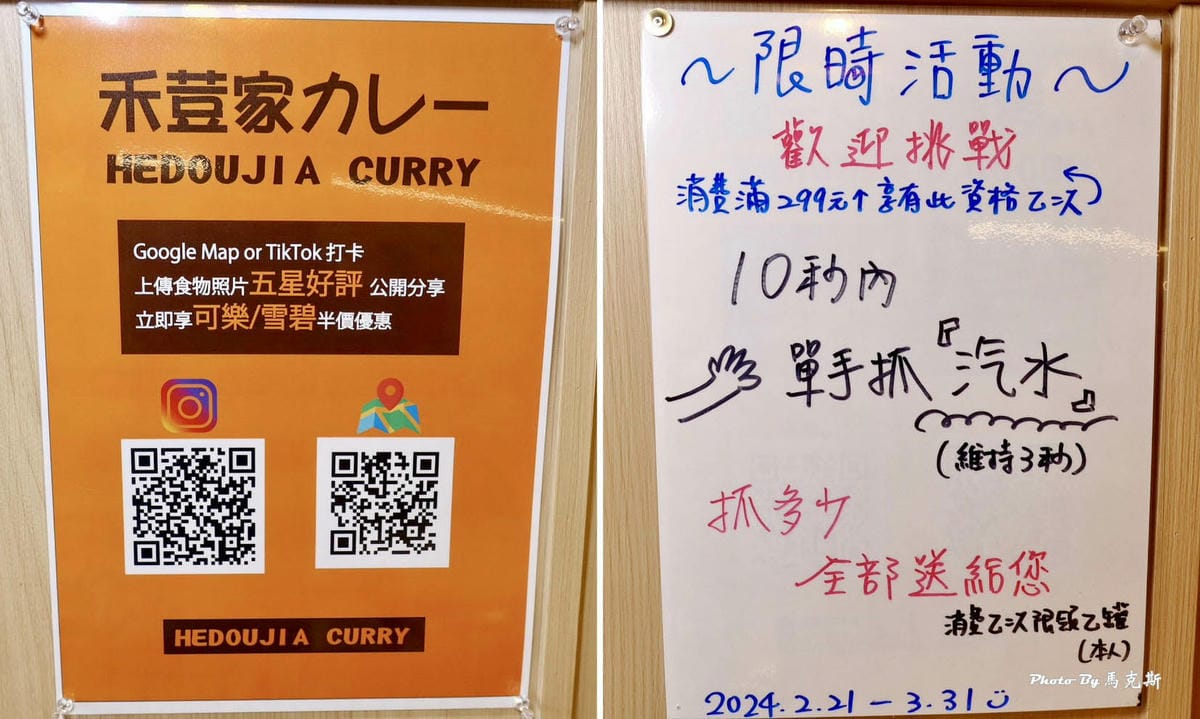 禾荳家カレー
HEDOUJIA CURRY
Google Map or TikTok 打卡
上傳食物照片五星好評 公開分享
立即享可樂/雪碧半價優惠
HEDOUJIA CURRY
~限時活動~
歡迎挑戰
消費滿299元↑享有此資格乙次
10秒內
單手抓『汽水』
(維持3秒)
抓多少
全部送給您
消費乙次限領乙罐
(本人)
2024.2.21-3.31
Photo By 馬克斯